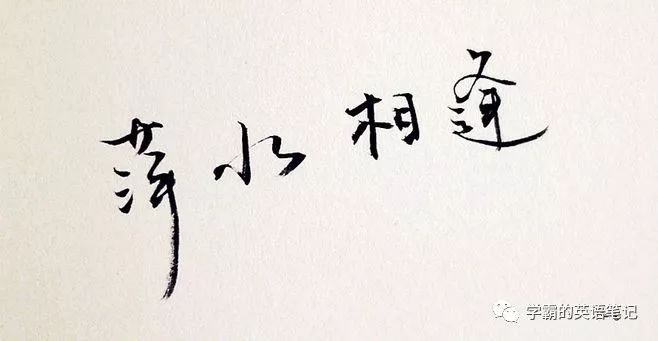 萍水相逢
学霸的英语笔记